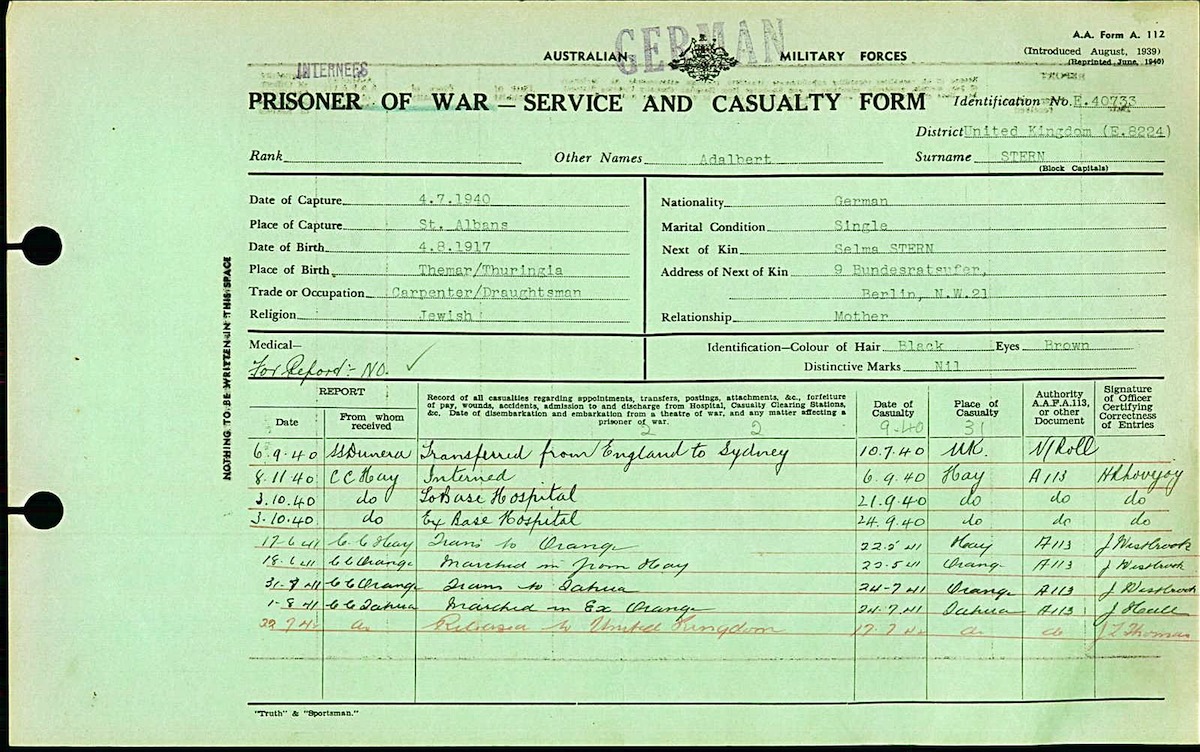 GERMAN
AUSTRALIAN MILITARY FORCES
A.A. Form A. 112
(Introduced August, 1939)
(Reprinted June, 1940)
INTERNEES
PRISONER OF WAR — SERVICE AND CASUALTY FORM
Identification No. E.40733
District United Kingdom (E.8224)
Rank Other Names Adalbert Surname STERN
(Block Capitals)
Date of Capture 4.7.1940
Place of Capture St. Albans
Date of Birth 4.8.1917
Place of Birth Themar/Thuringia
Trade or Occupation Carpenter/Draughtsman
Religion Jewish
Nationality German
Marital Condition Single
Next of Kin Selma STERN
Address of Next of Kin 9 Bundesratsufer,
Berlin, N.W.21
Relationship Mother
NOTHING TO BE WRITTEN IN THIS SPACE
Medical—
For Report:- NO. ✓
Identification—Colour of Hair Black Eyes Brown
Distinctive Marks Nil
REPORT
Date
From whom received
Record of all casualties regarding appointments, transfers, postings, attachments, &c., forfeiture
of pay, wounds, accidents, admission to and discharge from Hospital, Casualty Clearing Stations,
&c. Date of disembarkation and embarkation from a theatre of war, and any matter affecting a
prisoner of war.
2 2
Date of Casualty
9-40
Place of Casualty
31
Authority A.A.F.A.113, or other Document
Signature of Officer Certifying Correctness of Entries
6.9.40 SS Dunera Transferred from England to Sydney 10.7.40 UK. N/Roll
8.11.40 C C Hay Interned 6.9.40 Hay A113 H R Lovejoy
3.10.40 do To Base Hospital 21.9.40 do do do
3.10.40 do Ex Base Hospital 24.9.40 do do do
17-6-41 C. C. Hay Trans to Orange 22.5.41 Hay A113 J Westbrook
18.6.41 C C Orange Marched in from Hay 22.5.41 Orange A113 J Westbrook
31-7-41 C C Orange Trans to Tatura 24-7-41 Orange A113 J Westbrook
1-8-41 C C Tatura Marched in Ex Orange 24.7.41 Tatura A113
do Released to United Kingdom do do J L Thomas
"Truth" & "Sportsman."